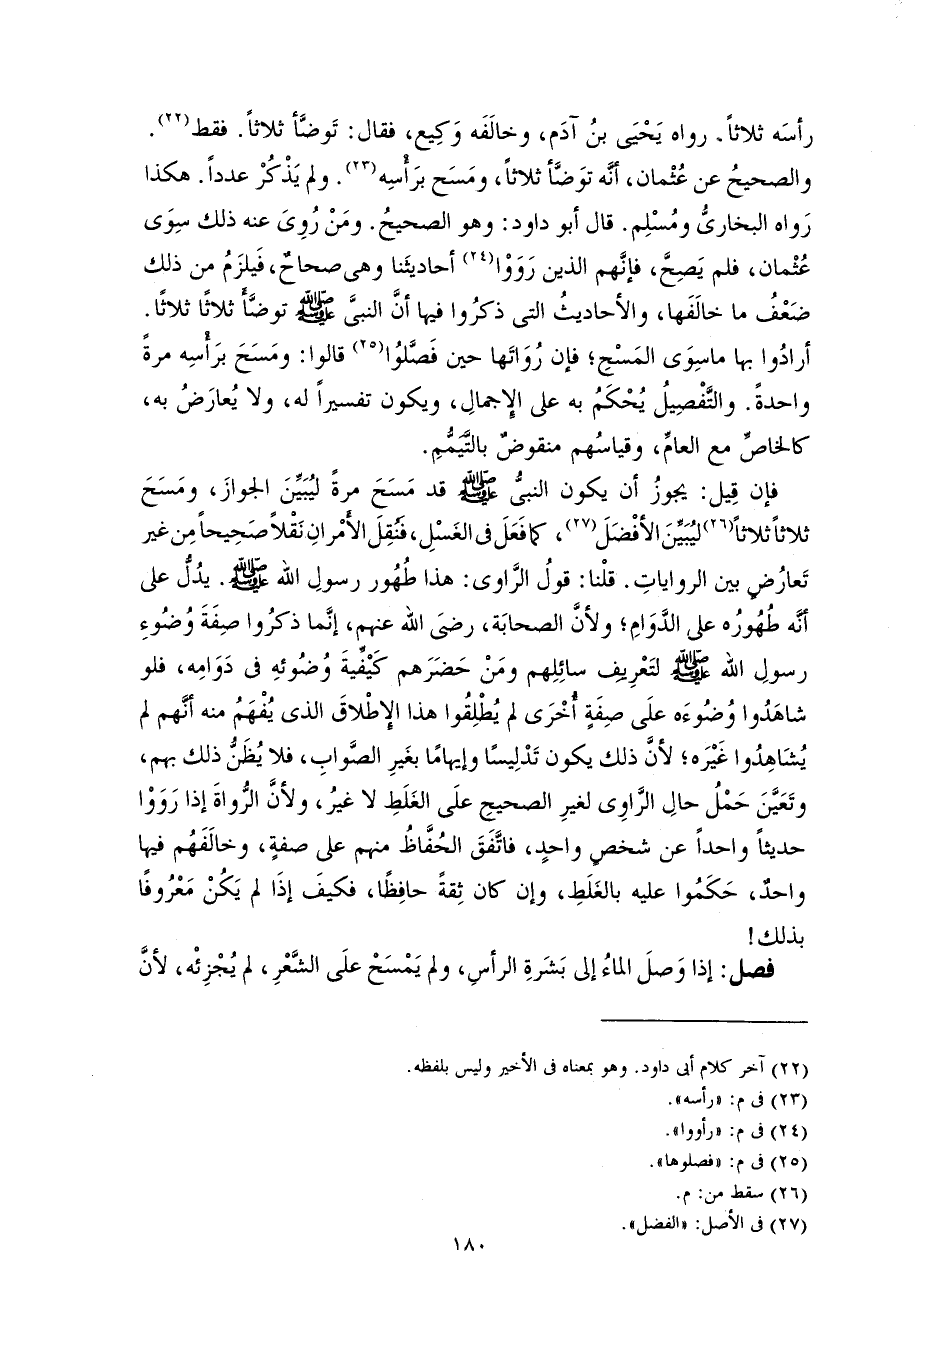 رأسَه ثلاثاً. رواه يَحْيَى بنُ آدَم، وخالَفَه وَكِيع، فقال: تَوضَّأ ثلاثاً. فقط(٢٢).
والصحيحُ عن عُثْمان، أنَّه توَضَّأ ثلاثاً، ومَسَح برَأْسِه(٢٣). ولم يَذْكُرْ عدداً. هكذا
رَواه البخارىُّ ومُسْلِم. قال أبو داود: وهو الصحيحُ. ومَنْ رُوِىَ عنه ذلك سِوَى
عُثْمان، فلم يَصِحَّ، فإنَّهم الذين رَوَوْا(٢٤) أحاديثَنا وهى صحاحٌ، فيَلزَمُ من ذلك
ضَعْفُ ما خالَفَها، والأحاديثُ التى ذكرُوا فيها أنَّ النبىَّ ﷺ توضَّأَ ثلاثًا ثلاثًا.
أرادُوا بها ماسِوَى المَسْحِ؛ فإن رُوَاتَها حين فَصَّلُوا(٢٥) قالوا: ومَسَحَ برَأْسِه مرةً
واحدةً. والتَّفْصِيلُ يُحْكَمُ به على الإِجمالِ، ويكون تفسيراً له، ولا يُعارَضُ به،
كالخاصِّ مع العامِّ، وقياسُهم منقوضٌ بالتَّيَمُّمِ.
فإن قِيل: يجوزُ أن يكون النبىُّ ﷺ قد مَسَحَ مرةً ليُبَيِّنَ الجوازَ، ومَسَحَ
ثلاثاً ثلاثاً(٢٦) ليُبَيِّنَ الأفْضَلَ(٢٧)، كما فَعَلَ فى الغَسْلِ، فنُقِلَ الأمْرانِ نَقْلاً صَحِيحاً مِن غيرِ
تَعارُضٍ بين الرواياتِ. قلْنا: قولُ الرَّاوى: هذا طُهُور رسولِ الله ﷺ. يدُلُّ على
أنَّه طُهُورُه على الدَّوَامِ؛ ولأنَّ الصحابَة، رضىَ الله عنهم، إنَّما ذكرُوا صِفَةَ وُضُوءِ
رسولِ الله ﷺ لتَعْرِيف سائِلِهم ومَنْ حَضَرَهم كَيْفِيَّةَ وُضُوئهِ فى دَوَامِه، فلو
شاهَدُوا وُضُوءَه علَى صِفَةٍ أُخْرَى لم يُطْلِقُوا هذا الإِطْلاقَ الذى يُفْهَمُ منه أنَّهم لم
يُشَاهِدُوا غَيْرَه؛ لأنَّ ذلك يكون تَدْلِيسًا وإيهامًا بغَيرِ الصَّوابِ، فلا يُظَنُّ ذلك بهم،
وتَعَيَّنَ حَمْلُ حالِ الرَّاوِى لغيرِ الصحيحِ علَى الغَلَطِ لا غيرُ، ولأنَّ الرُّواةَ إذا رَوَوْا
حديثاً واحداً عن شخصٍ واحدٍ، فاتَّفَقَ الحُفَّاظُ منهم على صفةٍ، وخالَفَهُم فيها
واحدٌ، حَكَمُوا عليه بالغَلَطِ، وإن كان ثِقةً حافِظًا، فكيفَ إذَا لم يَكُنْ مَعْرُوفًا
بذلك!
فصل: إذا وَصلَ الماءُ إلى بَشَرةِ الرأسِ، ولم يَمْسَحْ علَى الشَّعْرِ، لم يُجْزِئْه، لأنَّ
(٢٢) آخر كلام أبى داود. وهو بمعناه فى الأخير وليس بلفظه.
(٢٣) فى م: «رأسه».
(٢٤) فى م: «رأووا».
(٢٥) فى م: «فصلوها».
(٢٦) سقط من: م.
(٢٧) فى الأصل: «الفضل».
١٨٠